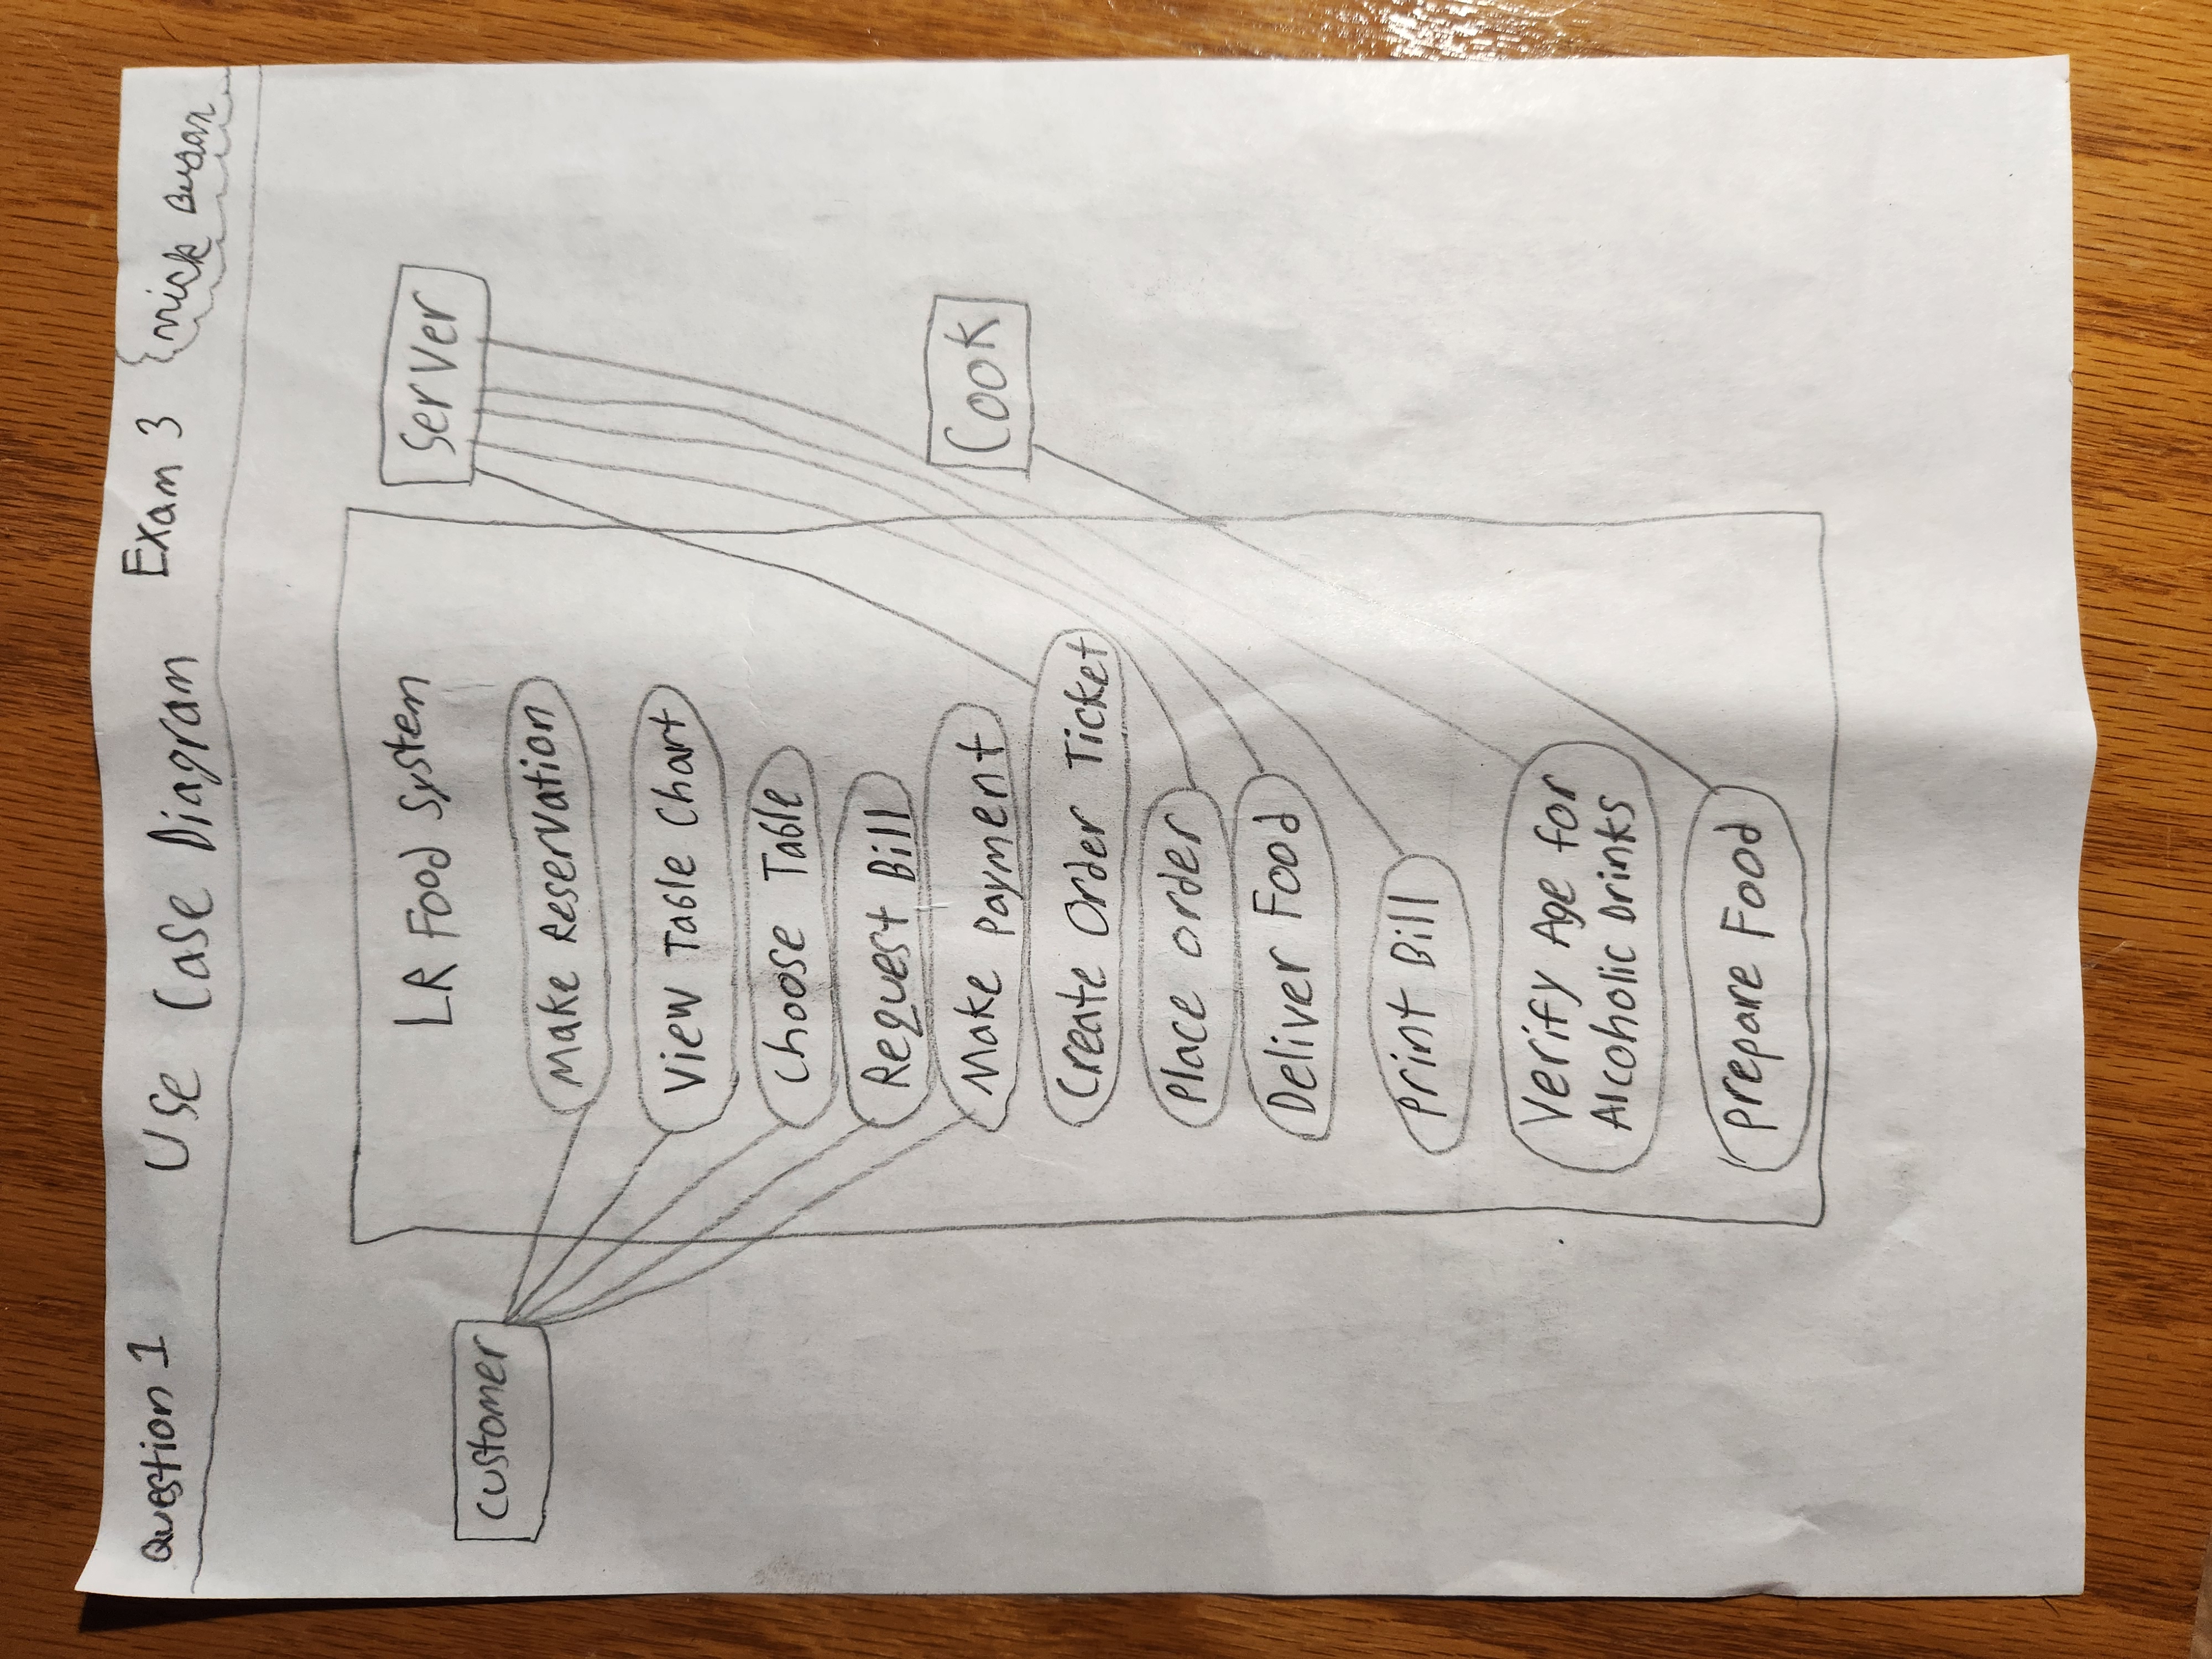 Question 1 Use Case Diagram Exam 3 Nick
LR Food System
Server
Customer
Make Reservation
View Table Chart
Choose Table
Request Bill
Make Payment
Cook
Create Order Ticket
Place order
Deliver Food
Print Bill
Verify Age for
Alcoholic Drinks
Prepare Food